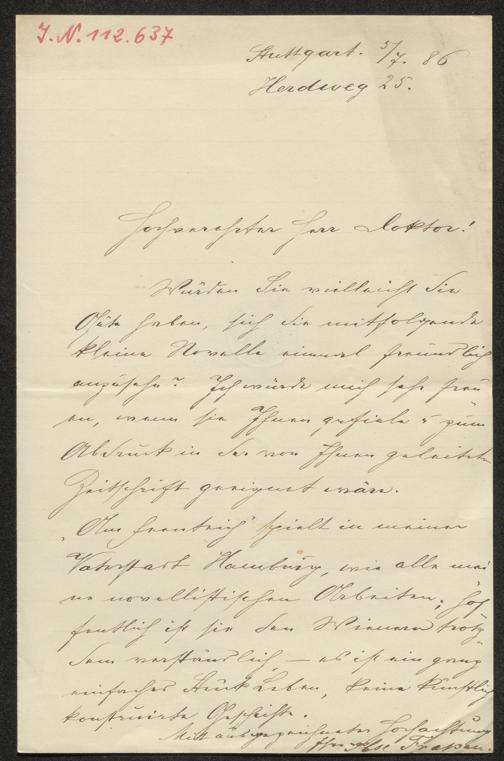 J.N. 112.637
Stuttgart. 5/7. 86
Herdweg 25.
Hochverehrter Herr Doktor!
Würden Sie vielleicht die
Güte haben, sich die mitfolgende
kleine Novelle einmal freundlich
anzusehn? Ich würde mich sehr freu
en, wenn sie Ihnen gefiele u zum
Abdruck in der von Ihnen geleiteten
Zeitschrift geeignet wäre.
„Am spielt in meiner
Vaterstadt Hamburg, wie alle mei
ne novellistischen Arbeiten; hof
fentlich ist sie den Wienern trotz
dem verständlich, – es ist ein ganz
einfaches Stück Leben, keine künstlich
konstruirte Geschichte.
Mit ausgezeichneter Hochachtung
Ihre Ilse Frapan.